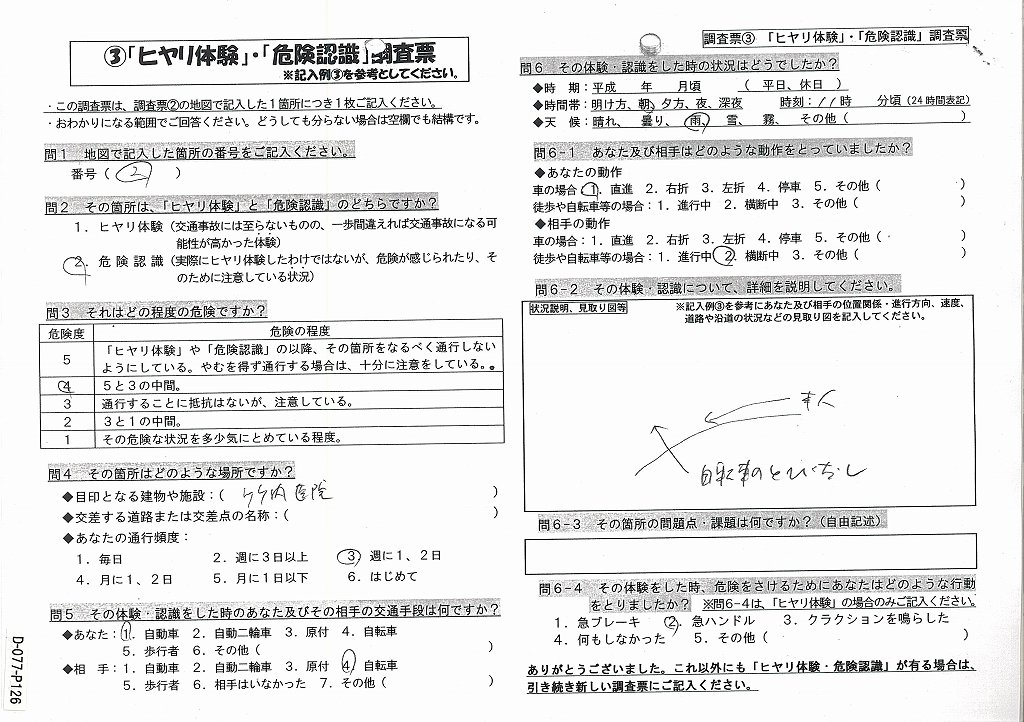 ③「ヒヤリ体験」・「危険認識」調査票
※記入例③を参考としてください。
・この調査票は、調査票②の地図で記入した1箇所につき1枚ご記入ください。
・おわかりになる範囲でご回答ください。どうしても分らない場合は空欄でも結構です。
問1 地図で記入した箇所の番号をご記入ください。
番号（ 2 ）
問2 その箇所は、「ヒヤリ体験」と「危険認識」のどちらですか？
1．ヒヤリ体験（交通事故には至らないものの、一歩間違えれば交通事故になる可
能性が高かった体験）
2．危険認識（実際にヒヤリ体験したわけではないが、危険が感じられたり、そ
のために注意している状況）
問3 それはどの程度の危険ですか？
危険度 危険の程度
5 「ヒヤリ体験」や「危険認識」の以降、その箇所をなるべく通行しない
ようにしている。やむを得ず通行する場合は、十分に注意をしている。
4 5と3の中間。
3 通行することに抵抗はないが、注意している。
2 3と1の中間。
1 その危険な状況を多少気にとめている程度。
問4 その箇所はどのような場所ですか？
◆目印となる建物や施設：（ 竹内医院 ）
◆交差する道路または交差点の名称：（ ）
◆あなたの通行頻度：
1．毎日 2．週に3日以上 3 週に1、2日
4．月に1、2日 5．月に1日以下 6．はじめて
問5 その体験・認識をした時のあなた及びその相手の交通手段は何ですか？
◆あなた：1．自動車 2．自動二輪車 3．原付 4．自転車
5．歩行者 6．その他（ ）
◆相 手：1．自動車 2．自動二輪車 3．原付 4 自転車
5．歩行者 6．相手はいなかった 7．その他（ ）
D-077-P126
調査票③ 「ヒヤリ体験」・「危険認識」調査票
問6 その体験・認識をした時の状況はどうでしたか？
◆時 期：平成 年 月頃 （ 平日、休日 ）
◆時間帯：明け方、朝、夕方、夜、深夜 時刻：11時 分頃（24時間表記）
◆天 候：晴れ、 曇り、 雨、 雪、 霧、 その他（ ）
問6-1 あなた及び相手はどのような動作をとっていましたか？
◆あなたの動作
車の場合：1．直進 2．右折 3．左折 4．停車 5．その他（ ）
徒歩や自転車等の場合：1．進行中 2．横断中 3．その他（ ）
◆相手の動作
車の場合：1．直進 2．右折 3．左折 4．停車 5．その他（ ）
徒歩や自転車等の場合：1．進行中 2．横断中 3．その他（ ）
問6-2 その体験・認識について、詳細を説明してください。
状況説明、見取り図等
※記入例③を参考にあなた及び相手の位置関係・進行方向、速度、
道路や沿道の状況などの見取り図を記入してください。
本人
自転車のとびだし
問6-3 その箇所の問題点・課題は何ですか？（自由記述）
問6-4 その体験をした時、危険をさけるためにあなたはどのような行動
をとりましたか？ ※問6-4は、「ヒヤリ体験」の場合のみご記入ください。
1．急ブレーキ 2．急ハンドル 3．クラクションを鳴らした
4．何もしなかった 5．その他（ ）
ありがとうございました。これ以外にも「ヒヤリ体験・危険認識」が有る場合は、
引き続き新しい調査票にご記入ください。